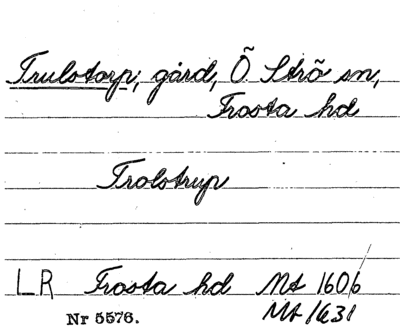 Trulstorp, gård, Ö Strö sn,
Frosta hd
Trolstrup
LR Frosta hd Mt 1606
Nr 5576. Mt 1631